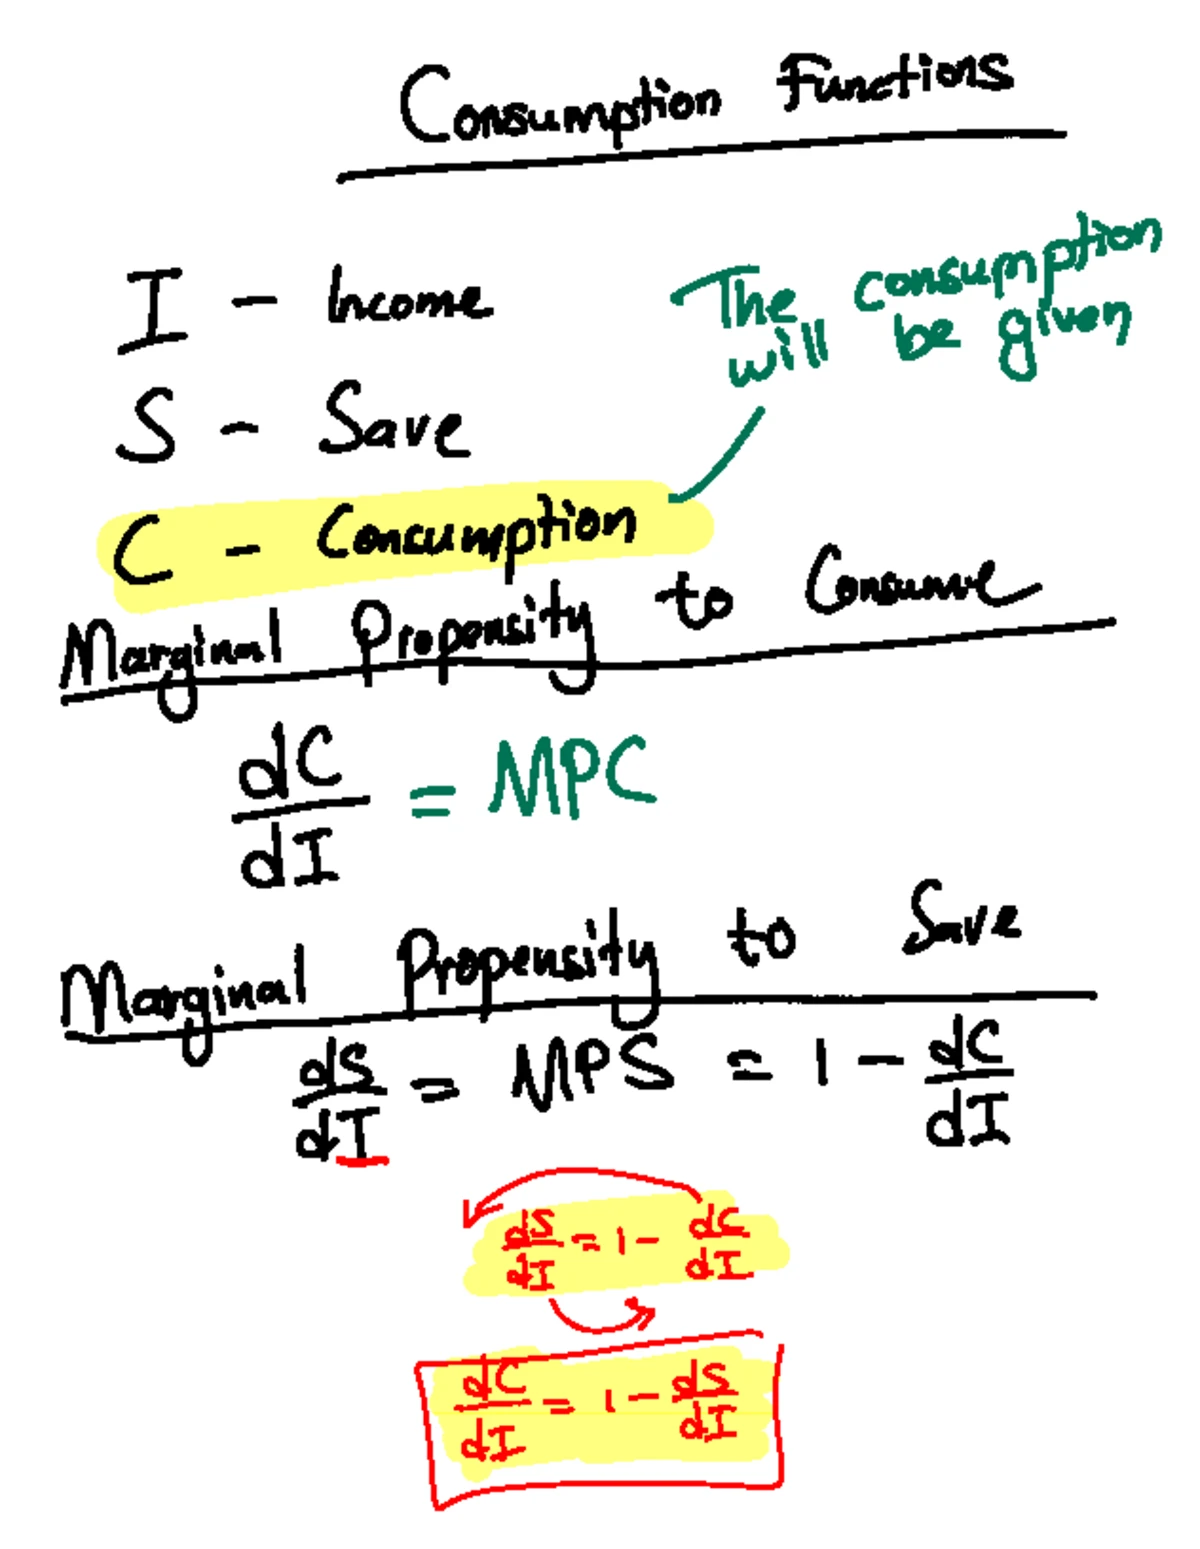 Consumption Functions
I - Income
The consumption
will be given
S - Save
C - Consumption
Marginal Propensity to Consume
dC/dI = MPC
Marginal Propensity to Save
dS/dI = MPS = 1 - dC/dI
dS/dI = 1 - dC/dI
dC/dI = 1 - dS/dI